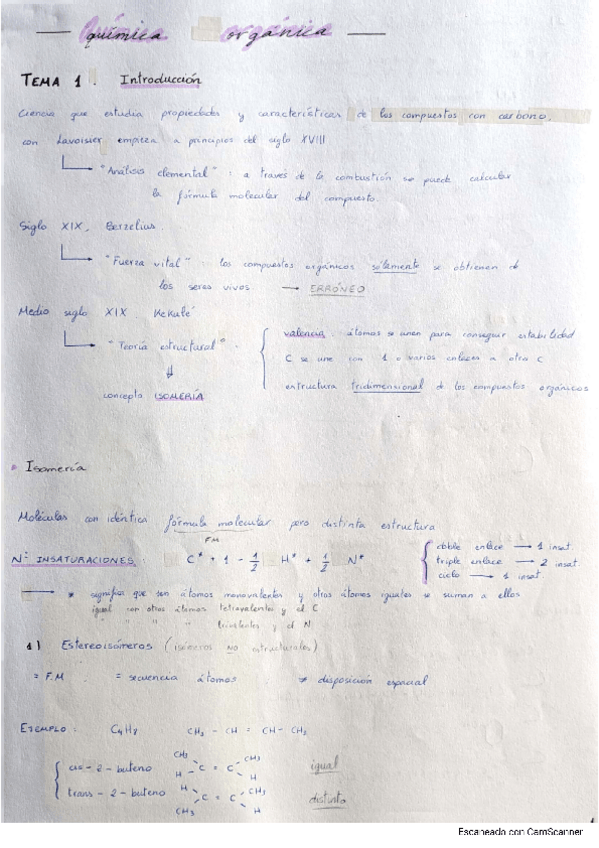 — Química orgánica —
TEMA 1. Introducción
Ciencia que estudia propiedades y características de los compuestos con carbono,
con Lavoisier empieza a principios del siglo XVIII
"Análisis elemental": a través de la combustión se puede calcular
la fórmula molecular del compuesto.
Siglo XIX, Berzelius
"Fuerza vital": los compuestos orgánicos sólamente se obtienen de
los seres vivos. → ERRÓNEO
Medio siglo XIX. Kekulé
"Teoría estructural".
valencia: átomos se unen para conseguir estabilidad
C se une con 1 o varios enlaces a otro C
estructura tridimensional de los compuestos orgánicos
⇓
concepto ISOMERÍA
• Isomería
Moléculas con idéntica fórmula molecular pero distinta estructura
FM
Nº INSATURACIONES: C* + 1 - 1/2 H* + 1/2 N*
doble enlace → 1 insat.
triple enlace → 2 insat.
ciclo → 1 insat.
* significa que son átomos monovalentes y otros átomos iguales se suman a ellos
igual con otros átomos tetravalentes y el C
" " " trivalentes y el N
1) Estereoisómeros (isómeros no estructurales)
= F.M = secuencia átomos ≠ disposición espacial
EJEMPLO: C4H8 CH3 - CH = CH - CH3
cis - 2 - buteno CH3 H C = C CH3 H igual
trans - 2 - buteno H CH3 C = C CH3 H distinto
Escaneado con CamScanner